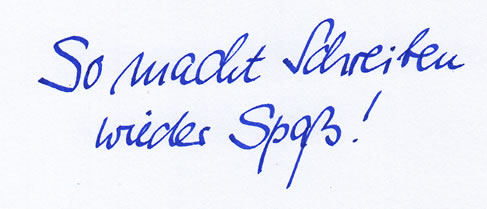 So macht Schreiben
wieder Spaß!